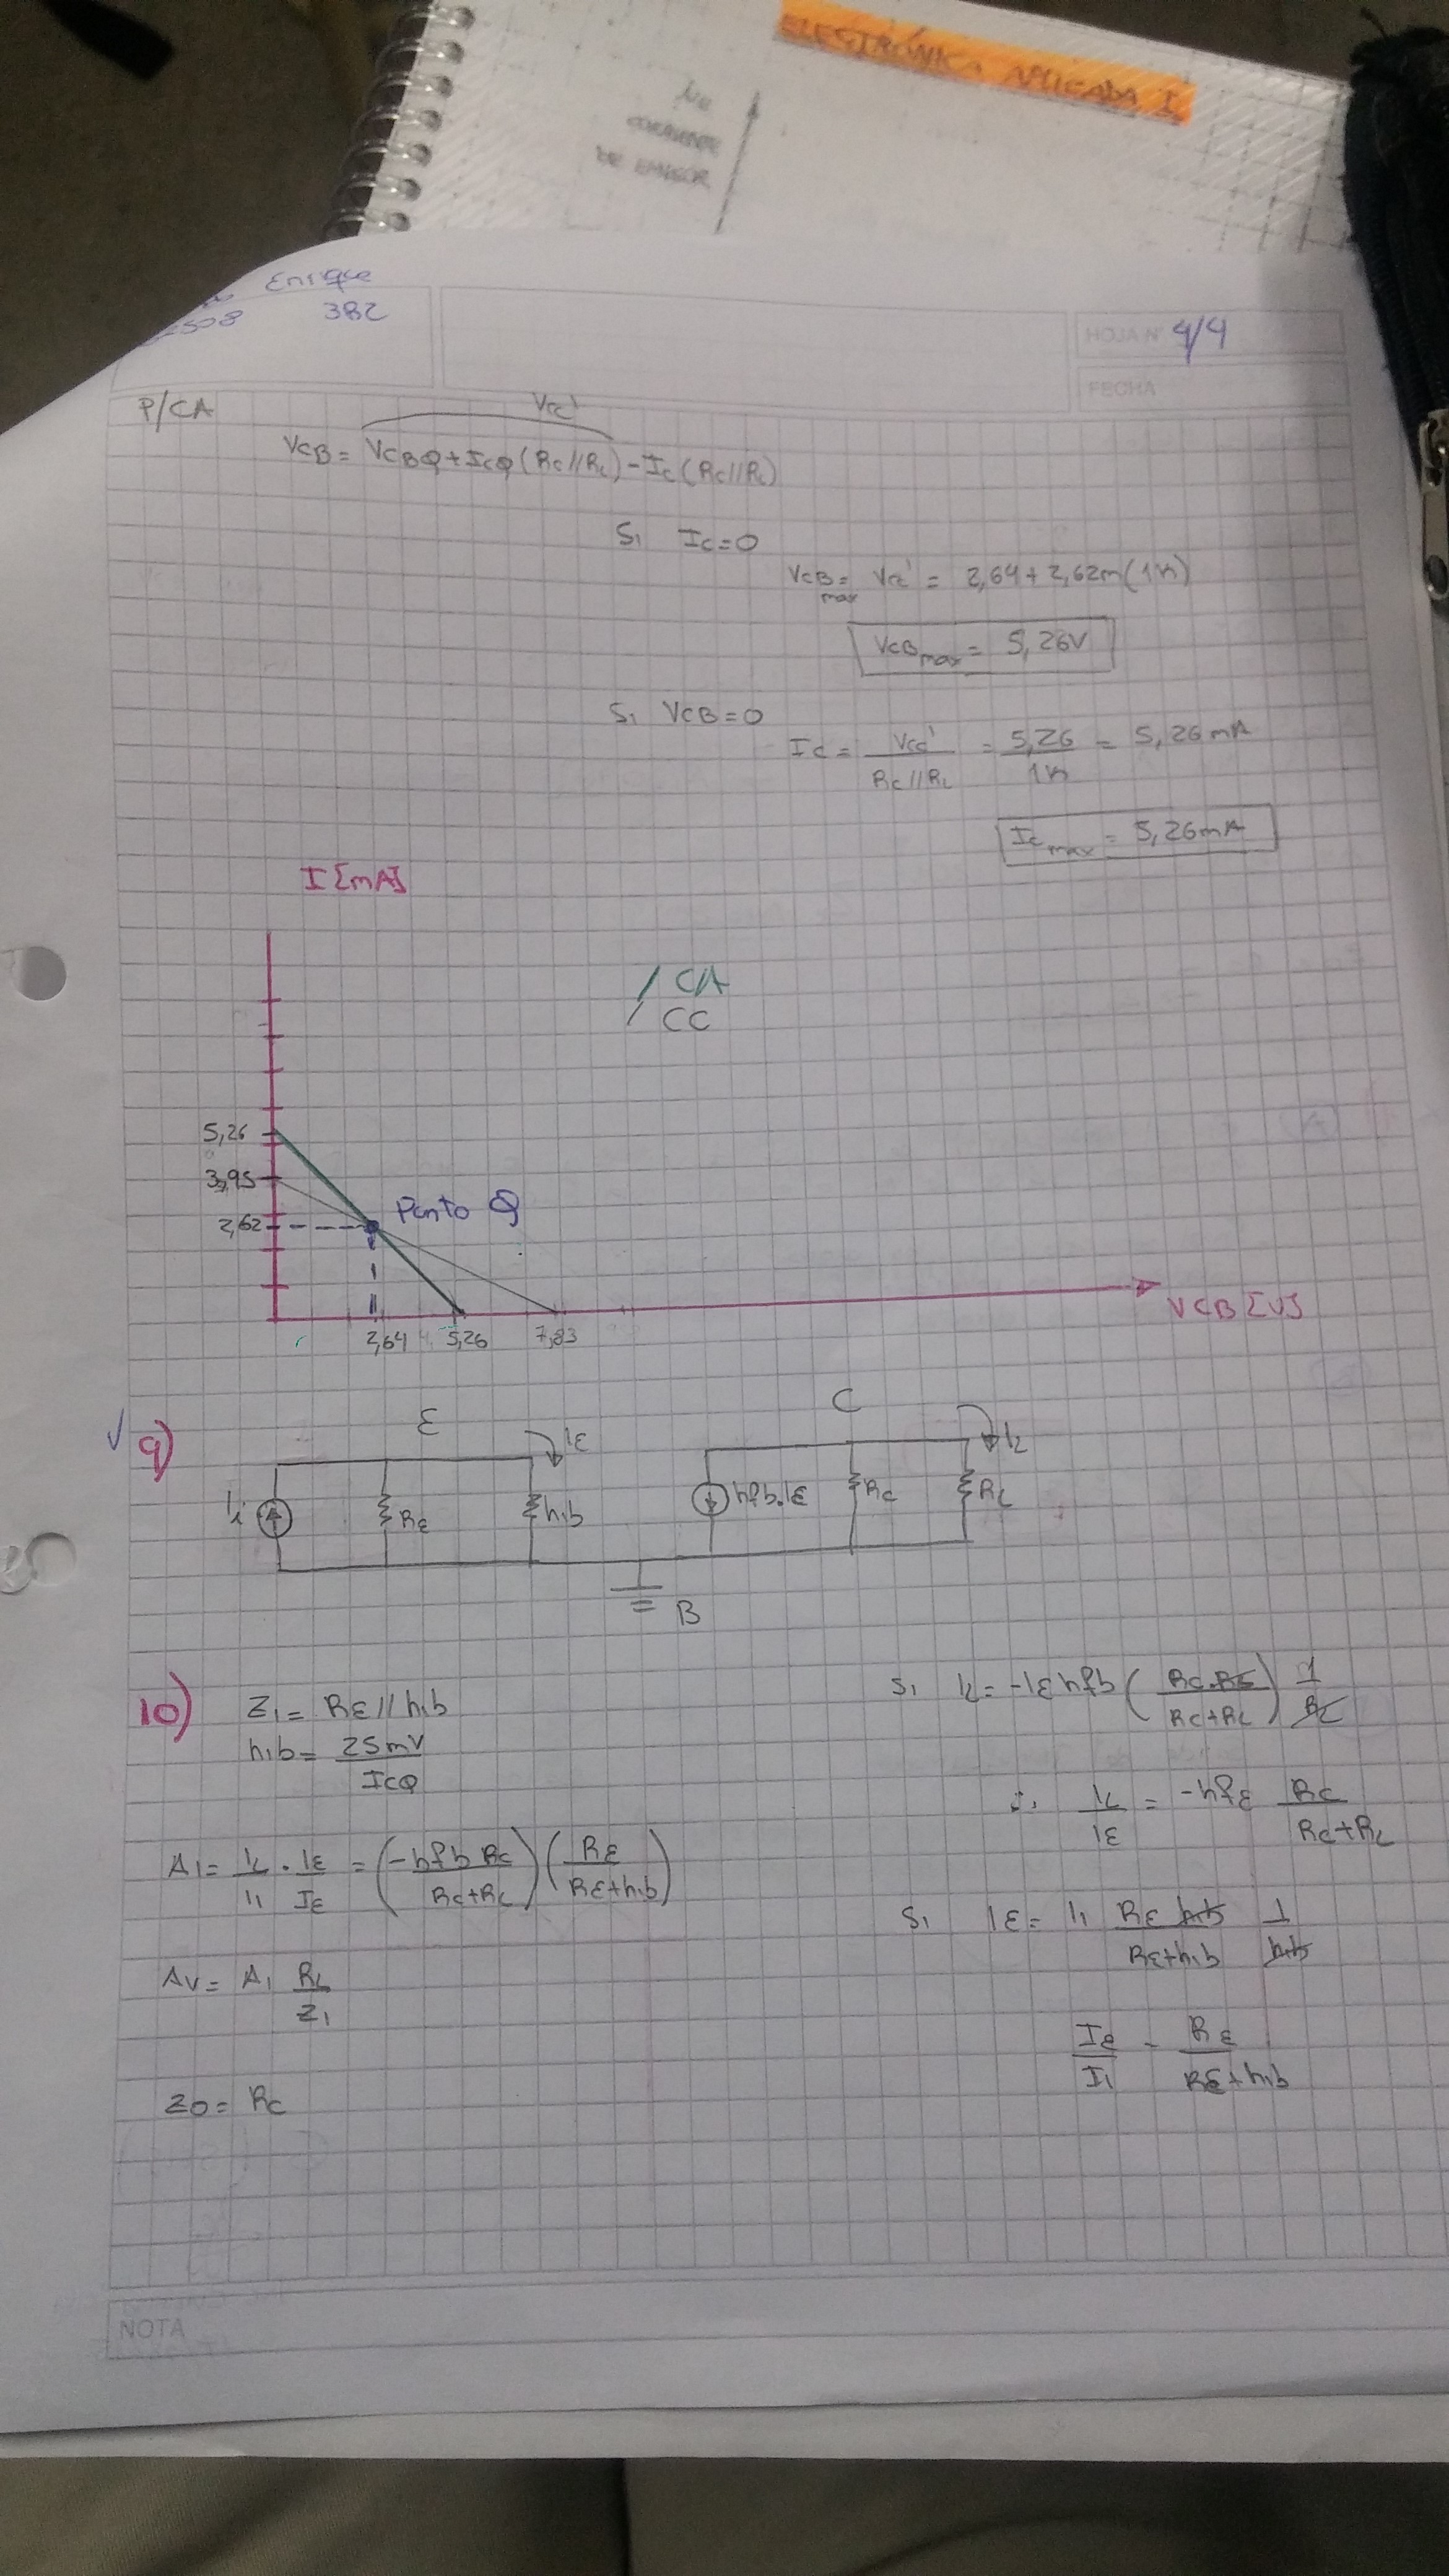 ELECTRÓNICA APLICADA I
CORRIENTE
DE EMISOR
Enrique
382
HOJA N° 4/4
FECHA
P/CA
Vcc'
VCB = VCBQ + ICQ (Rc//RL) - Ic (Rc//RL)
Si Ic=0
VCB max = Vcc' = 2,64 + 2,62m (1K)
VCB max = 5,26V
Si VCB=0
Ic = Vcc' / Rc//RL = 5,26 / 1K = 5,26 mA
Ic max = 5,26mA
I [mA]
/ CA
/ CC
5,26
3,95
2,62
Punto Q
2,64 5,26 7,83
VCB [V]
9)
E iE C iL
Ii RE hib hfb.iE Rc RL
B
10) Zi = RE // hib
hib = 25mV / ICQ
Ai = iL / ii . iE / IE = (-hfb Rc / Rc+RL) (RE / RE+hib)
Av = Ai RL / Zi
Zo = Rc
Si iL = -iE hfb (Rc.RL / Rc+RL) 1 / RL
∴ iL / iE = -hfE Rc / Rc+RL
Si iE = ii RE hib / RE+hib 1 / hib
IE / Ii = RE / RE+hib
NOTA